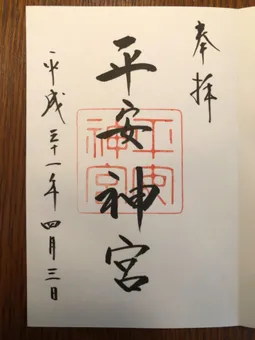 奉拝
平安神宮
平安
神宮
平成三十一年四月三日